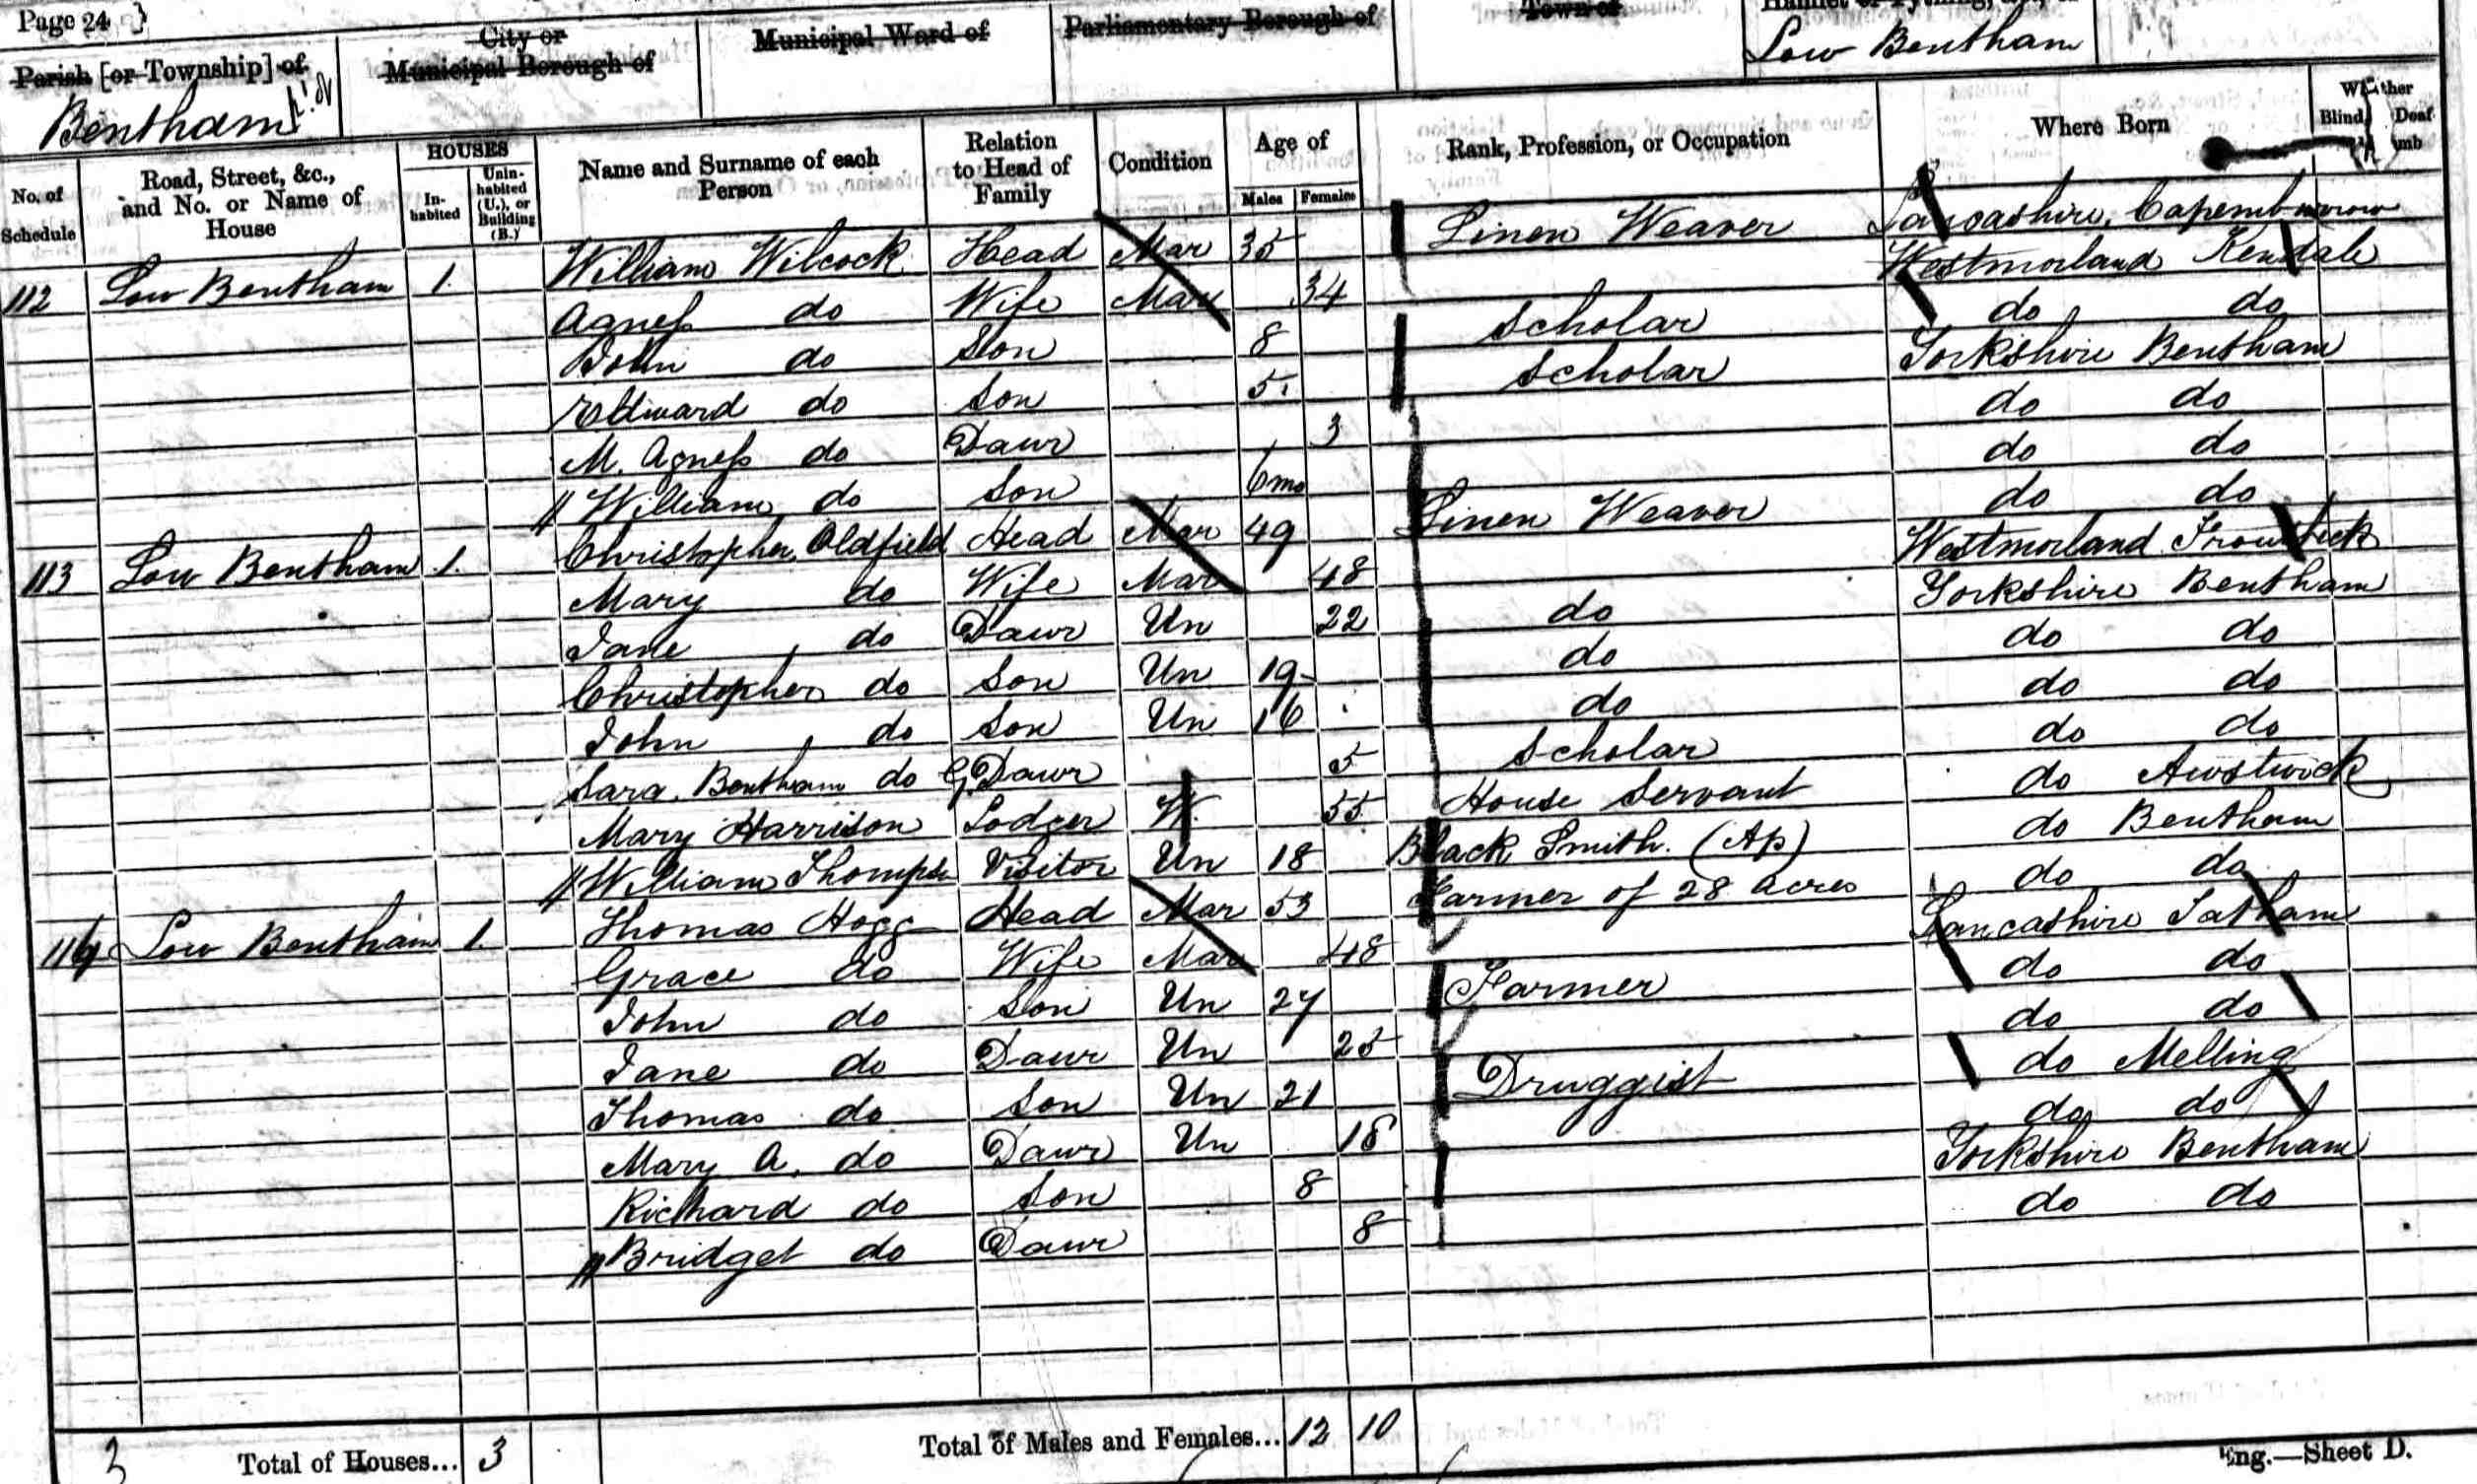 Page 24 }
Parish [or Township] of
Bentham pt of
City or
Municipal Borough of
Municipal Ward of
Parliamentary Borough of
Town of
Low Bentham
No. of Schedule
Road, Street, &c., and No. or Name of House
HOUSES
In-habited
Unin-habited (U.), or Building (B.)
Name and Surname of each Person
Relation to Head of Family
Condition
Age of
Males
Females
Rank, Profession, or Occupation
Where Born
Whether Blind, Deaf
112 Low Bentham 1. William Wilcock Head Mar 35 Linen Weaver Lancashire, Capernburrow
Agness do Wife Mar 34 Westmorland Kendale
John do Son 8 Scholar do do
Edward do Son 5 Scholar Yorkshire Bentham
M. Agness do Dawr 3 do do
William do Son 6mo do do
113 Low Bentham 1. Christopher Oldfield Head Mar 49 Linen Weaver do do
Mary do Wife Mar 48 Westmorland Troutbeck
Jane do Dawr Un 22 do Yorkshire Bentham
Christopher do Son Un 19 do do do
John do Son Un 16 do do do
Sara Bentham do G.Dawr 5 Scholar do do
Mary Harrison Lodger W. 55 House Servant do Awstwick
William Thompson Visitor Un 18 Black Smith. (Ap) do Bentham
114 Low Bentham 1. Thomas Hogg Head Mar 53 Farmer of 28 acres do do
Grace do Wife Mar 48 Lancashire Tatham
John do Son Un 27 Farmer do do
Jane do Dawr Un 25 do do
Thomas do Son Un 21 Druggist do Melling
Mary A. do Dawr Un 18 do do
Richard do Son 8 Yorkshire Bentham
Bridget do Dawr 8 do do
3 Total of Houses... 3 Total of Males and Females... 12 10
Eng.—Sheet D.